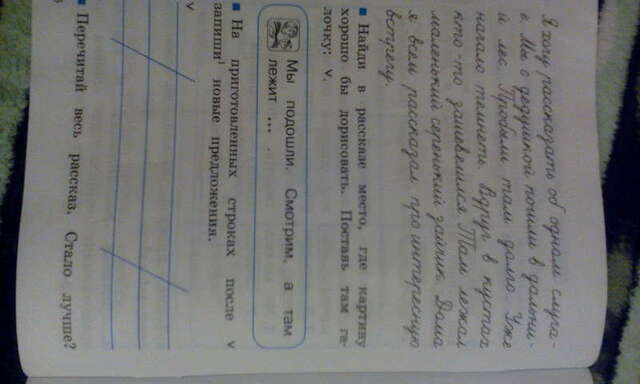 Я хочу рассказать об одном случа-
е. Мы с дедушкой пошли в дальни-
й лес. Пробыли там долго. Уже
начало темнеть. Вдруг в кустах
кто-то зашевелился. Там лежал
маленький серенький зайчик. Дома
я всем рассказал про интересную
встречу.
Найди в рассказе место, где картину
хорошо бы дорисовать. Поставь там га-
лочку: v.
Мы подошли. Смотрим, а там
лежит ... .
На приготовленных строках после v
запиши¹ новые предложения.
v
Перечитай весь рассказ. Стало лучше?